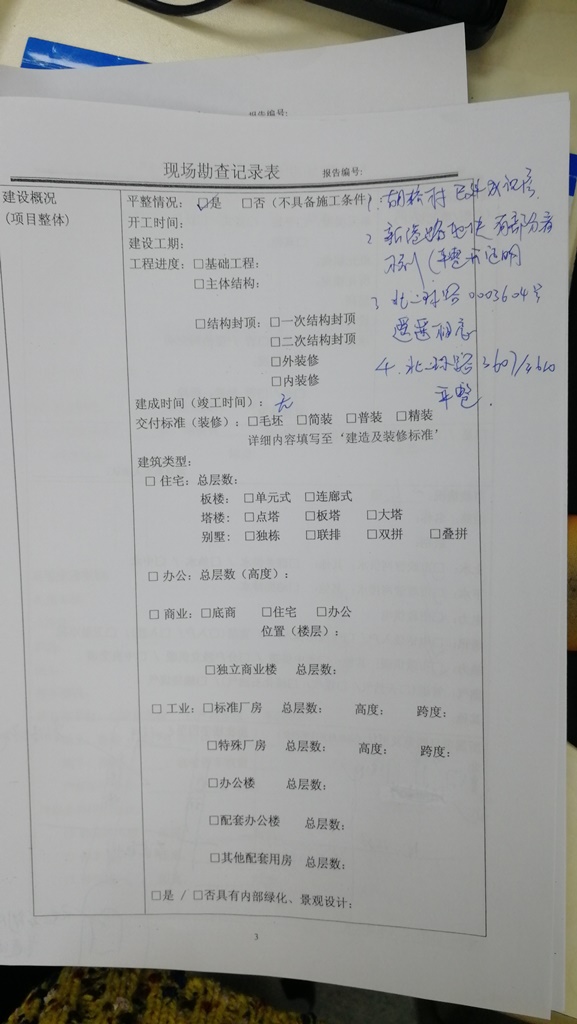 报告编号:
现场勘查记录表 报告编号:
建设概况
(项目整体)
平整情况: ☑是 □否 (不具备施工条件)
开工时间:
建设工期:
工程进度: □基础工程:
□主体结构:
□结构封顶: □一次结构封顶
□二次结构封顶
□外装修
□内装修
建成时间 (竣工时间): 无
交付标准 (装修): □毛坯 □简装 □普装 □精装
详细内容填写至‘建造及装修标准’
建筑类型:
□ 住宅: 总层数:
板楼: □单元式 □连廊式
塔楼: □点塔 □板塔 □大塔
别墅: □独栋 □联排 □双拼 □叠拼
□ 办公: 总层数 (高度):
□ 商业: □底商 □住宅 □办公
位置 (楼层):
□独立商业楼 总层数:
□ 工业: □标准厂房 总层数: 高度: 跨度:
□特殊厂房 总层数: 高度: 跨度:
□办公楼 总层数:
□配套办公楼 总层数:
□其他配套用房 总层数:
□是 / □否具有内部绿化、景观设计:
1. 村
2 新港路地块 有部分
(平整
3 北二环路 0003604号
4. 北二环路 3607/3610
平整.
3